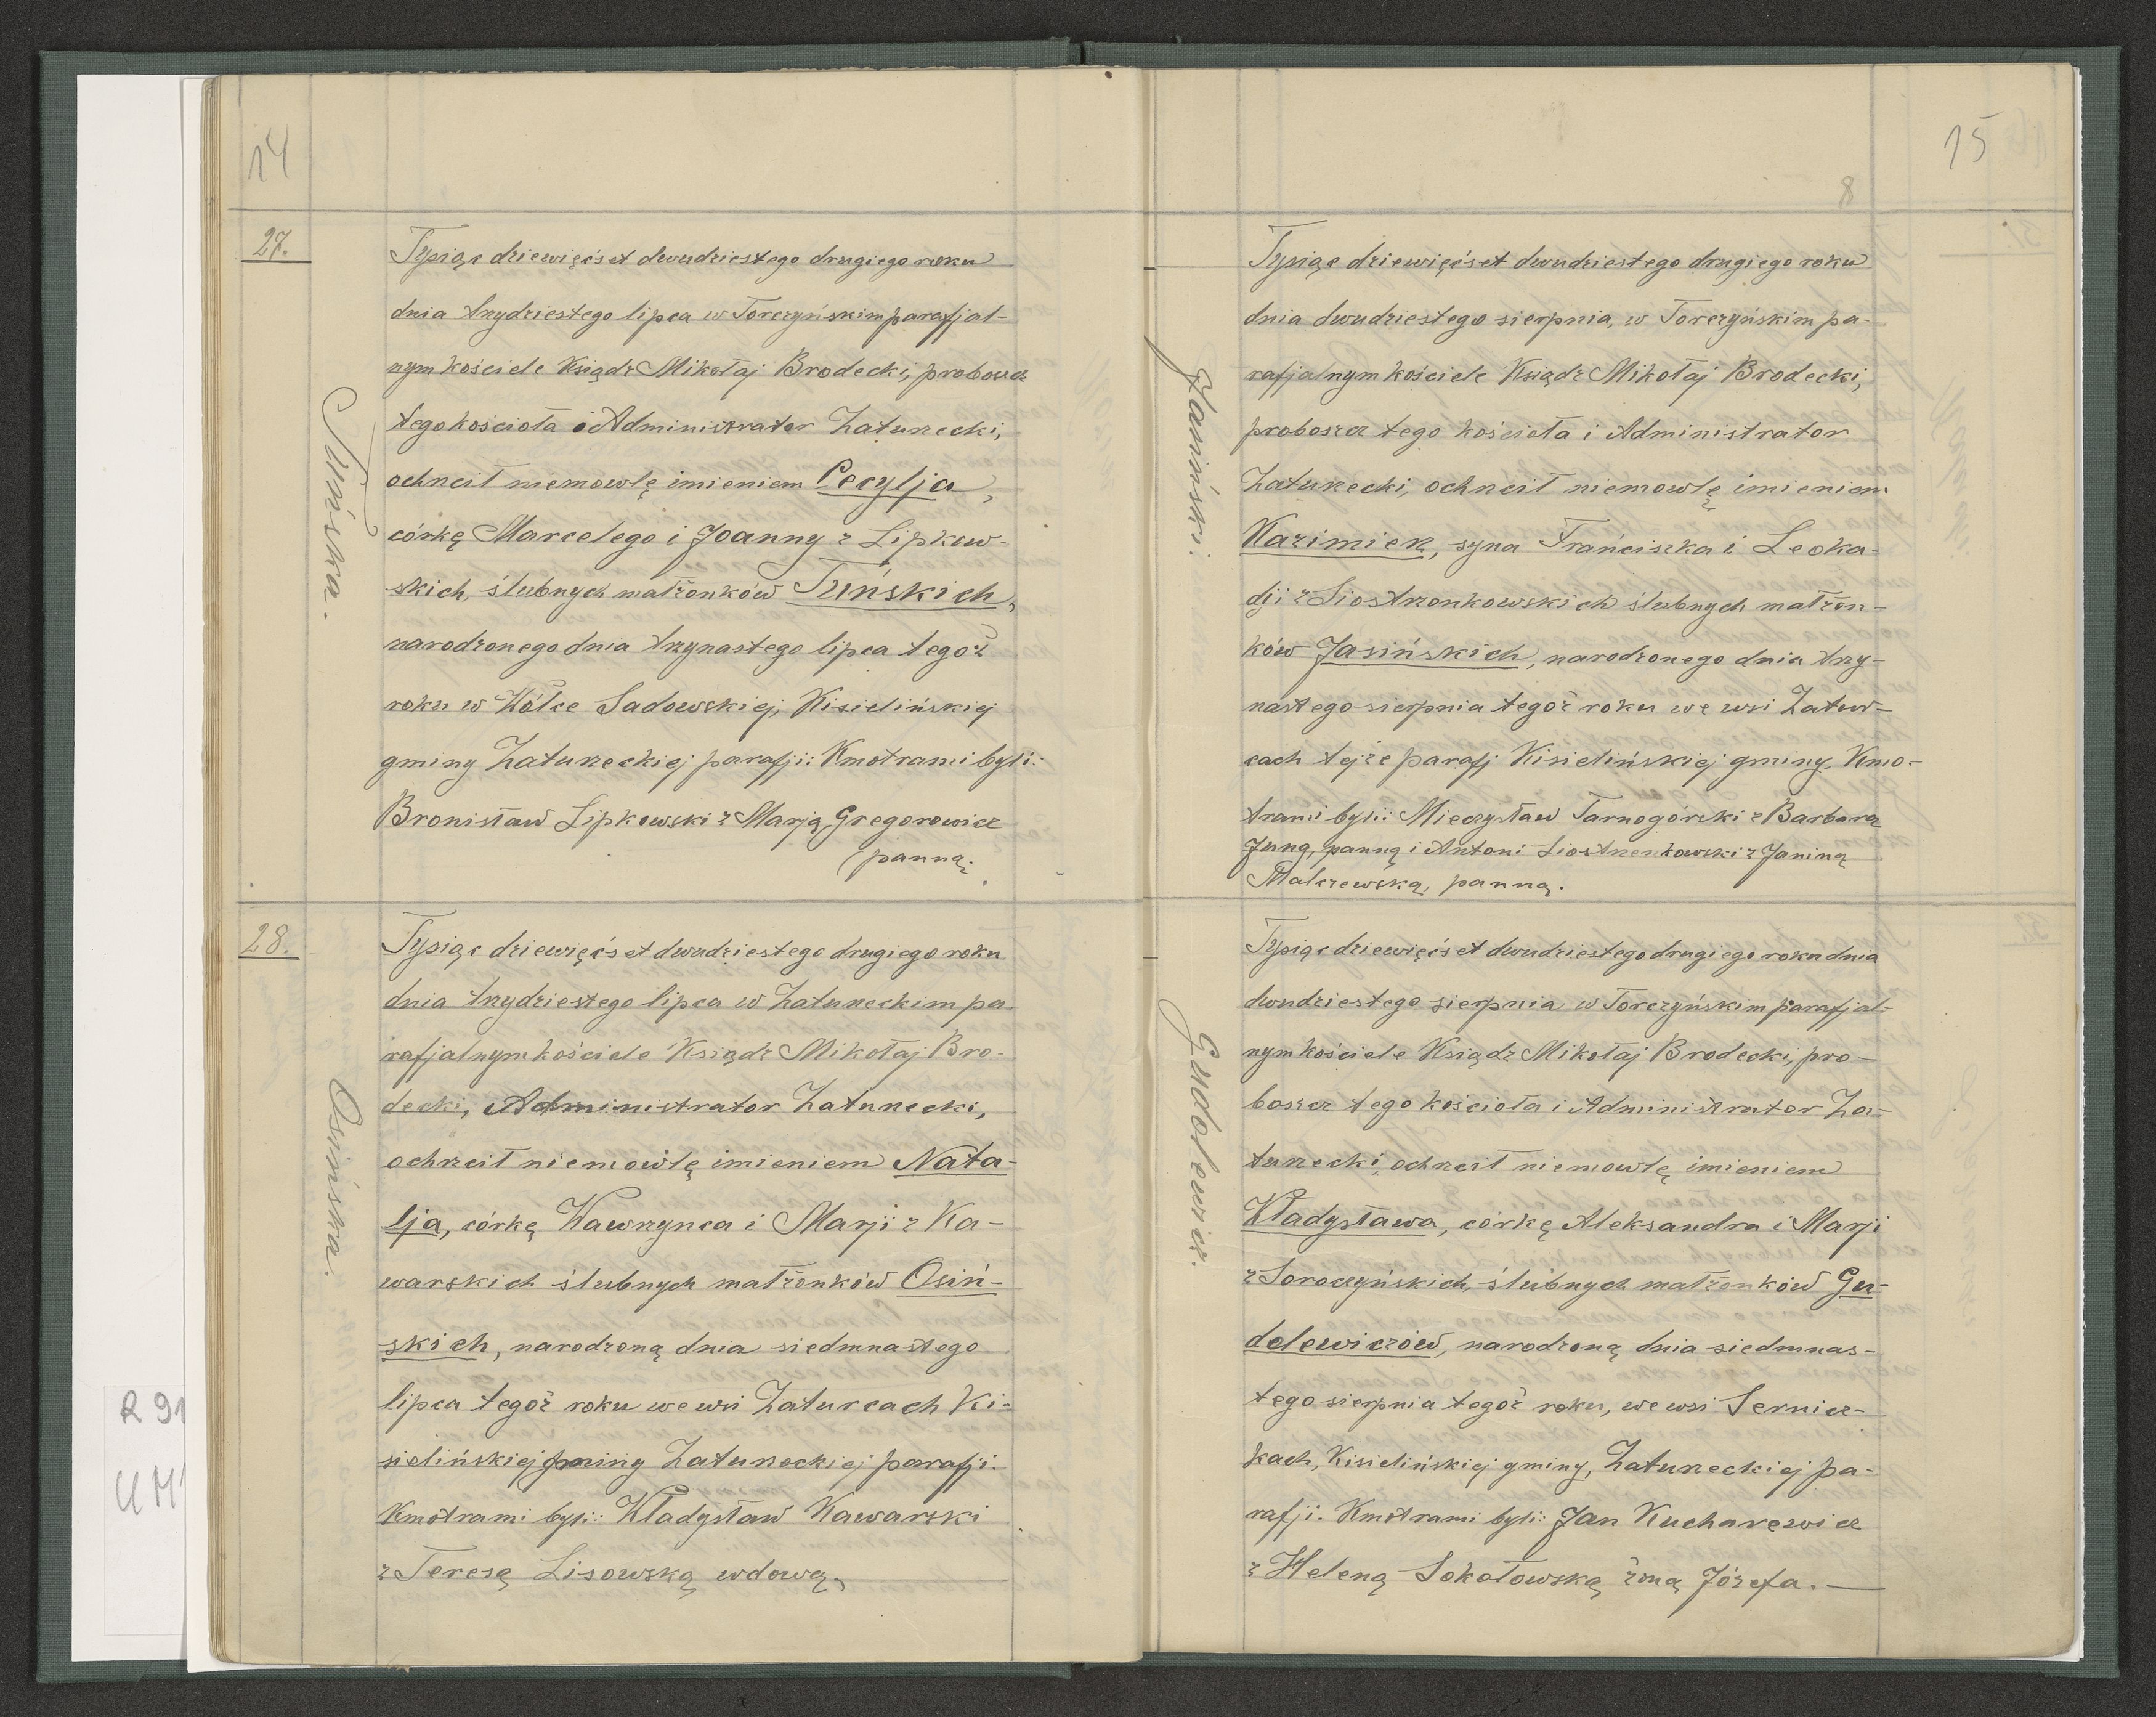 14
27.
Tuńska.
Tysiąc dziewięćset dwudziestego drugiego roku
dnia trzydziestego lipca w Torczyńskim parafjal-
nym kościele Ksiądz Mikołaj Brodecki, proboszcz
tego kościoła i Administrator Zaturzecki,
ochrzcił niemowlę imieniem Cecylja,
córkę Marcelego i Joanny z Lipkow-
skich, ślubnych małżonków Tuńskich,
narodzonego dnia trzynastego lipca tegoż
roku w Wólce Sadowskiej, Kisielińskiej
gminy Zaturzeckiej parafji: Kmotrami byli:
Bronisław Lipkowski z Marją Gregorowicz
(panną.
28.
Osińska.
Tysiąc dziewięćset dwudziestego drugiego roku
dnia trzydziestego lipca w Zaturzeckim pa-
rafjalnym kościele Ksiądz Mikołaj Bro-
decki, Administrator Zaturzecki,
ochrzcił niemowlę imieniem Nata-
lja, córkę Wawrzynca i Marji z Ka-
warskich ślubnych małżonków Osiń-
skich, narodzoną dnia siedmnastego
lipca tegoż roku we wsi Zaturcach Ki-
sielińskiej gminy Zaturzeckiej parafji.
Kmotrami byli: Władysław Kawarski
z Teresą Lisowską wdową,
15
8
Jasiński.
Tysiąc dziewięćset dwudziestego drugiego roku
dnia dwudziestego sierpnia, w Torczyńskim pa-
rafjalnym kościele Ksiądz Mikołaj Brodecki,
proboszcz tego kościoła i Administrator
Zaturzecki, ochrzcił niemowlę imieniem
Kazimierz, syna Franciszka i Leoka-
dji z Siostrzonkowskich ślubnych małżon-
ków Jasińskich, narodzonego dnia trzy-
nastego sierpnia tegoż roku we wsi Zatur-
cach tejże parafj Kisielińskiej gminy. Kmo-
trami byli: Mieczysław Tarnogórski z Barbarą
Jung, panną i Antoni Siostrzonkowski z Janiną
Malczewską, panną.
Gudolewicz.
Tysiąc dziewięćset dwudziestego drugiego roku dnia
dwudziestego sierpnia w Torczyńskim parafjal-
nym kościele Ksiądz Mikołaj Brodecki, pro-
boszcz tego kościoła i Administrator Za-
turzecki, ochrzcił niemowlę imieniem
Władysława, córkę Aleksandra i Marji
z Soroczyńskich, ślubnych małżonków Gu-
dolewiczów, narodzoną dnia siedmnas-
tego sierpnia tegoż roku, we wsi Sernicz-
kach, Kisielińskiej gminy, Zaturzeckiej pa-
rafji. Kmotrami byli: Jan Kucharewicz
z Heleną Sokołowską żoną Józefa.